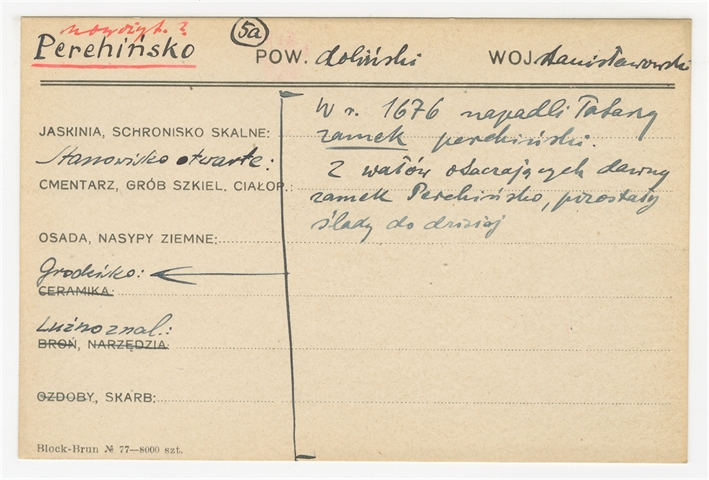 nowożyt. ?
Perehińsko
5a
POW. doliński
WOJ. stanisławowski
W r. 1676 napadli Tatarzy
JASKINIA, SCHRONISKO SKALNE:
zamek perehiński.
Stanowisko otwarte:
Z wałów otaczających dawny
CMENTARZ, GRÓB SZKIEL. CIAŁOP.:
zamek Perehińsko, pozostały
ślady do dzisiaj
OSADA, NASYPY ZIEMNE:
Grodzisko:
CERAMIKA:
Luźno znal.:
BROŃ, NARZĘDZIA:
OZDOBY, SKARB:
Block-Brun № 77—8000 szt.